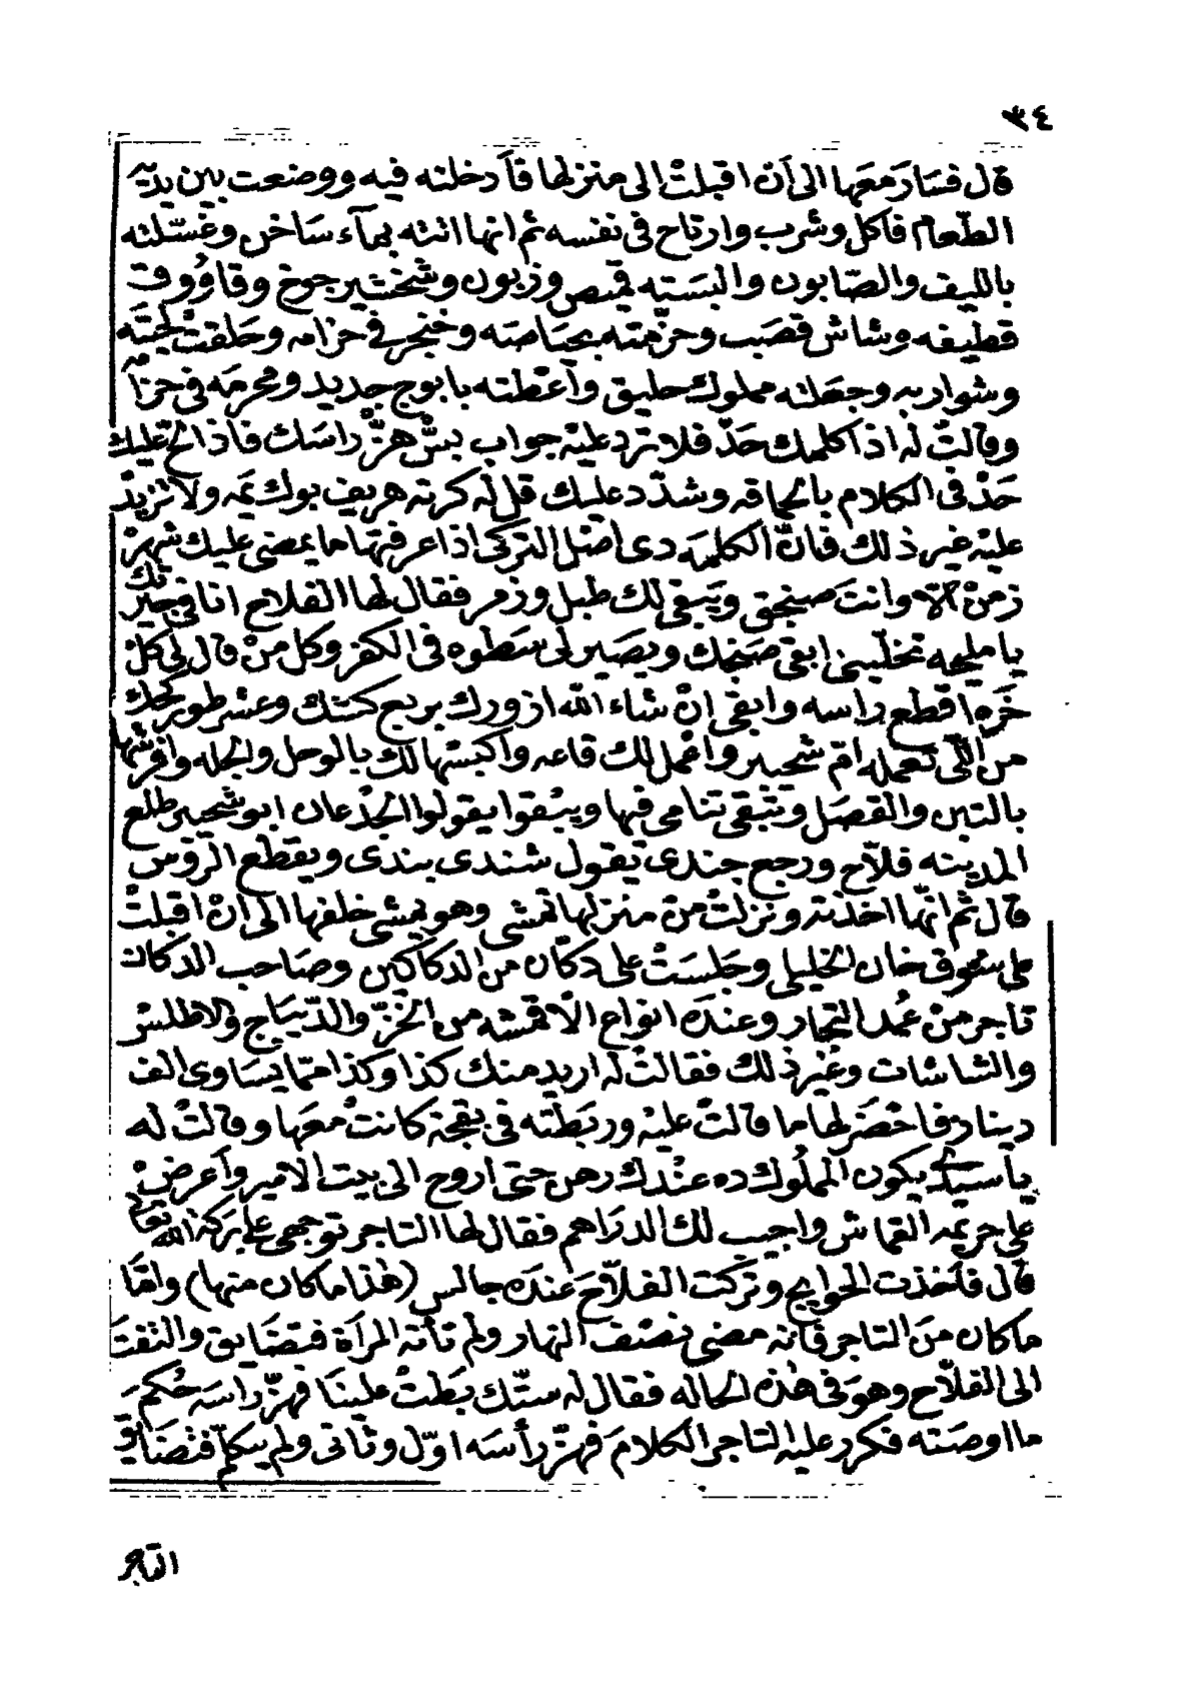 ٣٤
قال فسَارَ معَها الى اَن اقبلتْ الى منزلها فآدخلته فيه ووضعت بين يديه
الطّعام فاكل وشرب وارتاح فى نفسه ثم انها اتته بمآء سَاخن وغسّلته
بالليف والصّابون والبسَته قميص وزبون وشخشير جوخ وقاوُوق
قطيفه وشاش قصَب وحزّمته بحيَاصَته وخنجر في حزامه وحَلقتْ لحيَته
وشواربه وجعَلته مملوك حليق وآعْطته بابوج جديد ومحرمَه فى حزامه
وقالتْ له اذا كلمك حَدّ فلا تردّ عليْه جواب بسّ هزّ راسَك فاذا لحّ عليك
حَدّ فى الكلام بالحماقه وشدّد عليك قل له كرته هريف بوك يمه ولا تزيدْ
عليْه غير ذلك فانّ الكلمَه دى اصْل التركى اذا عرفتها ما يمضى عليك شهرْ
زمنْ الا وانتَ صنجق ويَبقى لك طبل وزمر فقال لها الفلاح انا فى جيرتك
يا مليحه تخلّينى ابقى صَنجك ويصَير لى سَطوه فى الكفر وكل منْ قال لى كل
خَره اقطع راسه وابقى انْ شاء الله ازورك بربع كشك وعشر طور جلّه
من الّى تعمله امّ شحيبر واعْمل لك قاعه واكبسْها لك بالوحل والجله وافرشها
بالتبن والقصَل وتبْقى تنامى فيها ويبْقوا يقولوا الجدْعان ابو شحيبر طلع
المدينه فلاّح ورجع جندى يقول شندى بندى ويقطع الروس
قال ثم انّها اخذته ونزلتْ منْ منزلها تمشى وهو يمشى خلفها الى انْ اقبلتْ
على سُوق خان الخليلى وجَلسَتْ على دكّان من الدكاكين وصَاحب الدكان
تاجر منْ عُمد التجار وعندَه انواع الاقمشه من الخزّ والدّيبَاج والاطلس
والشاشات وغيْر ذلك فقالتْ له اريد منك كذا وكذا ممّا يسَاوى الف
دينار فاحْضَر لها ما قالتْ عليْه وربَطتْه فى بقجة كانتْ معَها وقالتْ له
يا سَيدى يكون المملوك ده عنْدك رهن حتى اروح الى بيت الامير وآعرضْ
على حريمه القماش واجيب لك الدرَاهم فقال لها التاجر توجهى على بركة الله تعالى
قال فآخذت الحوايج وتركت الفلاّحَ عندَه جالس (هٰذا ما كان منها) وامّا
ما كان منَ التاجر فانه مضى نصْف النهار ولم تأته المرآة فتضَايق والتفتَ
الى الفلاّح وهوَ فى هٰذه الحاله فقال له ستّك بَطتْ علينَا فهزّ راسَه حُكمَ
ما اوصَته فكرر عليه التاجر الكلامَ فهزّ رأسَه اوّل وثانى ولم يتكلّم فتضَايق
التاجر